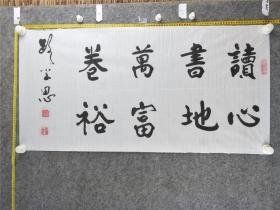 讀書萬卷
心地富裕